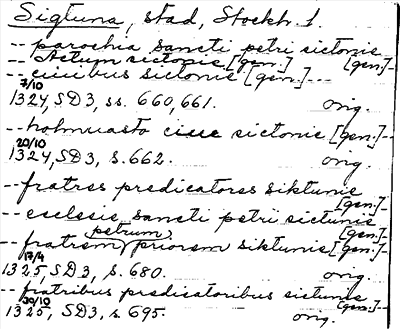 Sigtuna, stad, Stockh. l.
-- parochia sancti petri sictonie [gen.]--
-- Actum sictonie [gen.]
-- ciuibus sictonie [gen.]---
7/10
1324, SD3, ss. 660, 661. orig.
-- holmuasto ciue sictonie [gen.]--
20/10
1324, SD3, s. 662. orig.
-- fratres predicatores siktunie [gen.]--
-- ecclesie sancti petri sictunie [gen.]--
-- fratrem petrum priorem siktunie [gen.]--
17/4
1325, SD3, s. 680. orig.
-- fratribus predicatoribus sictunie [gen.]--
29/10
1325, SD3, s. 695. orig.